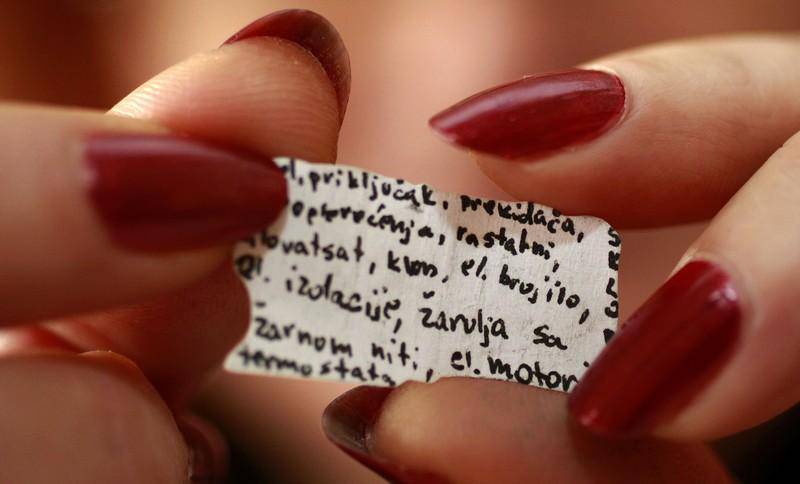 priključak, prekidača,
opterećenja, rastalni,
kWh, el. brojilo,
el. izolacije, žarulja sa
žarnom niti, el. motor
termostata